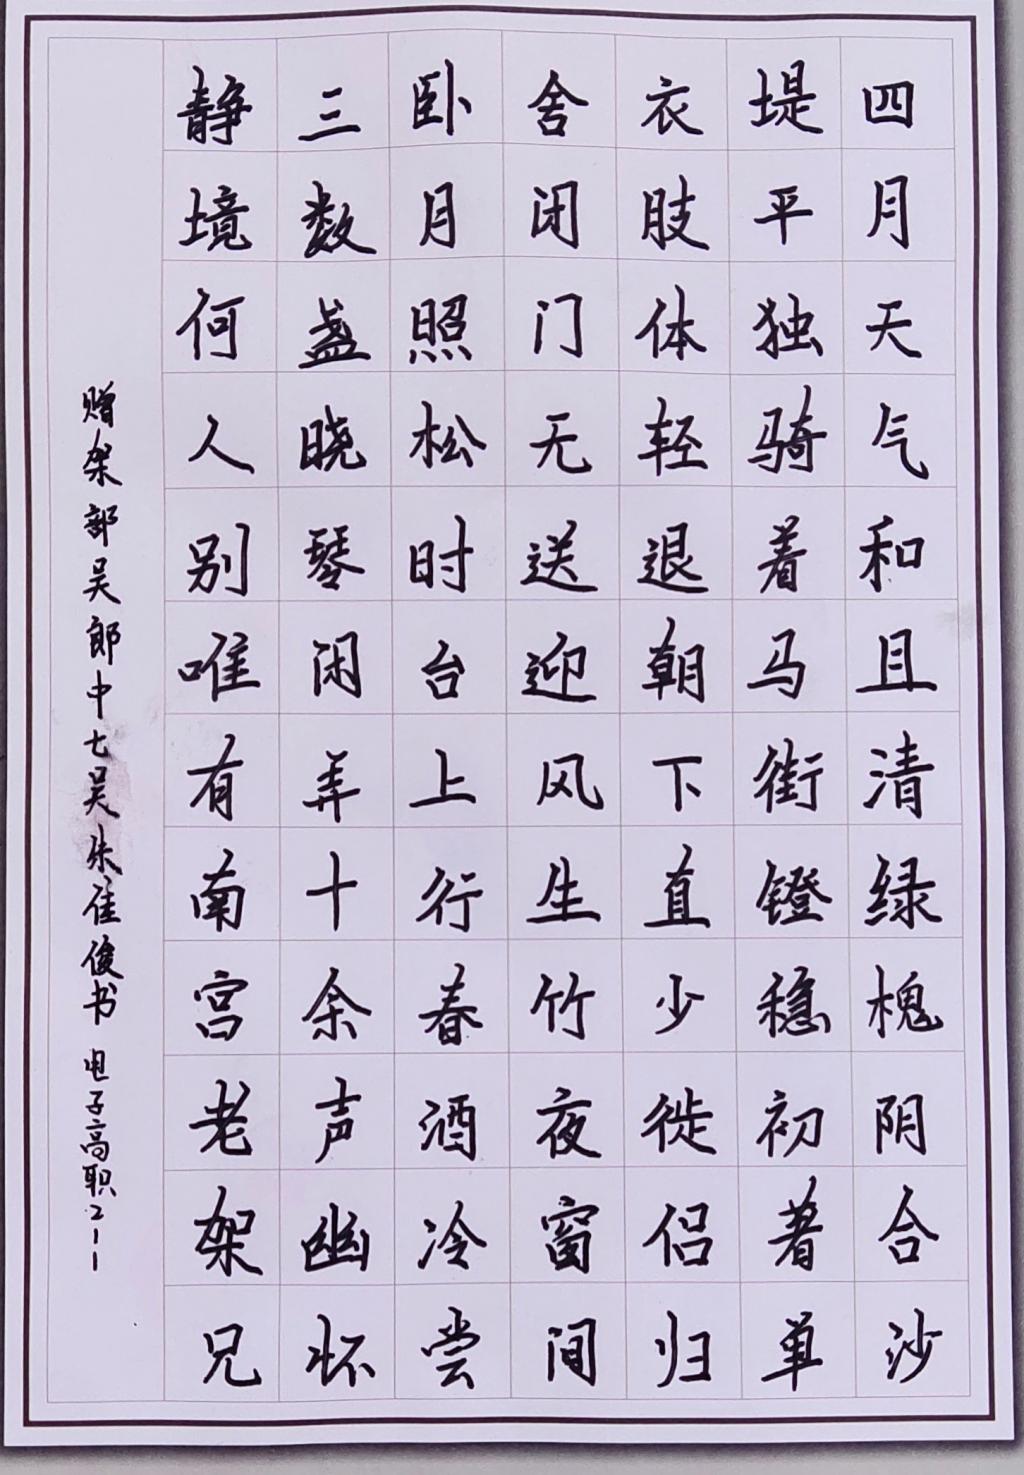 四月天气和且清绿槐阴合沙
堤平独骑着马街镫稳初著单
衣肢体轻退朝下直少徙侣归
舍闭门无送迎风生竹夜窗间
卧月照松时台上行春酒冷尝
三数盏晓琴闲弄十余声幽怀
静境何人别唯有南宫老架兄
赠架部吴郎中七吴朱崔俊书 电子高职211